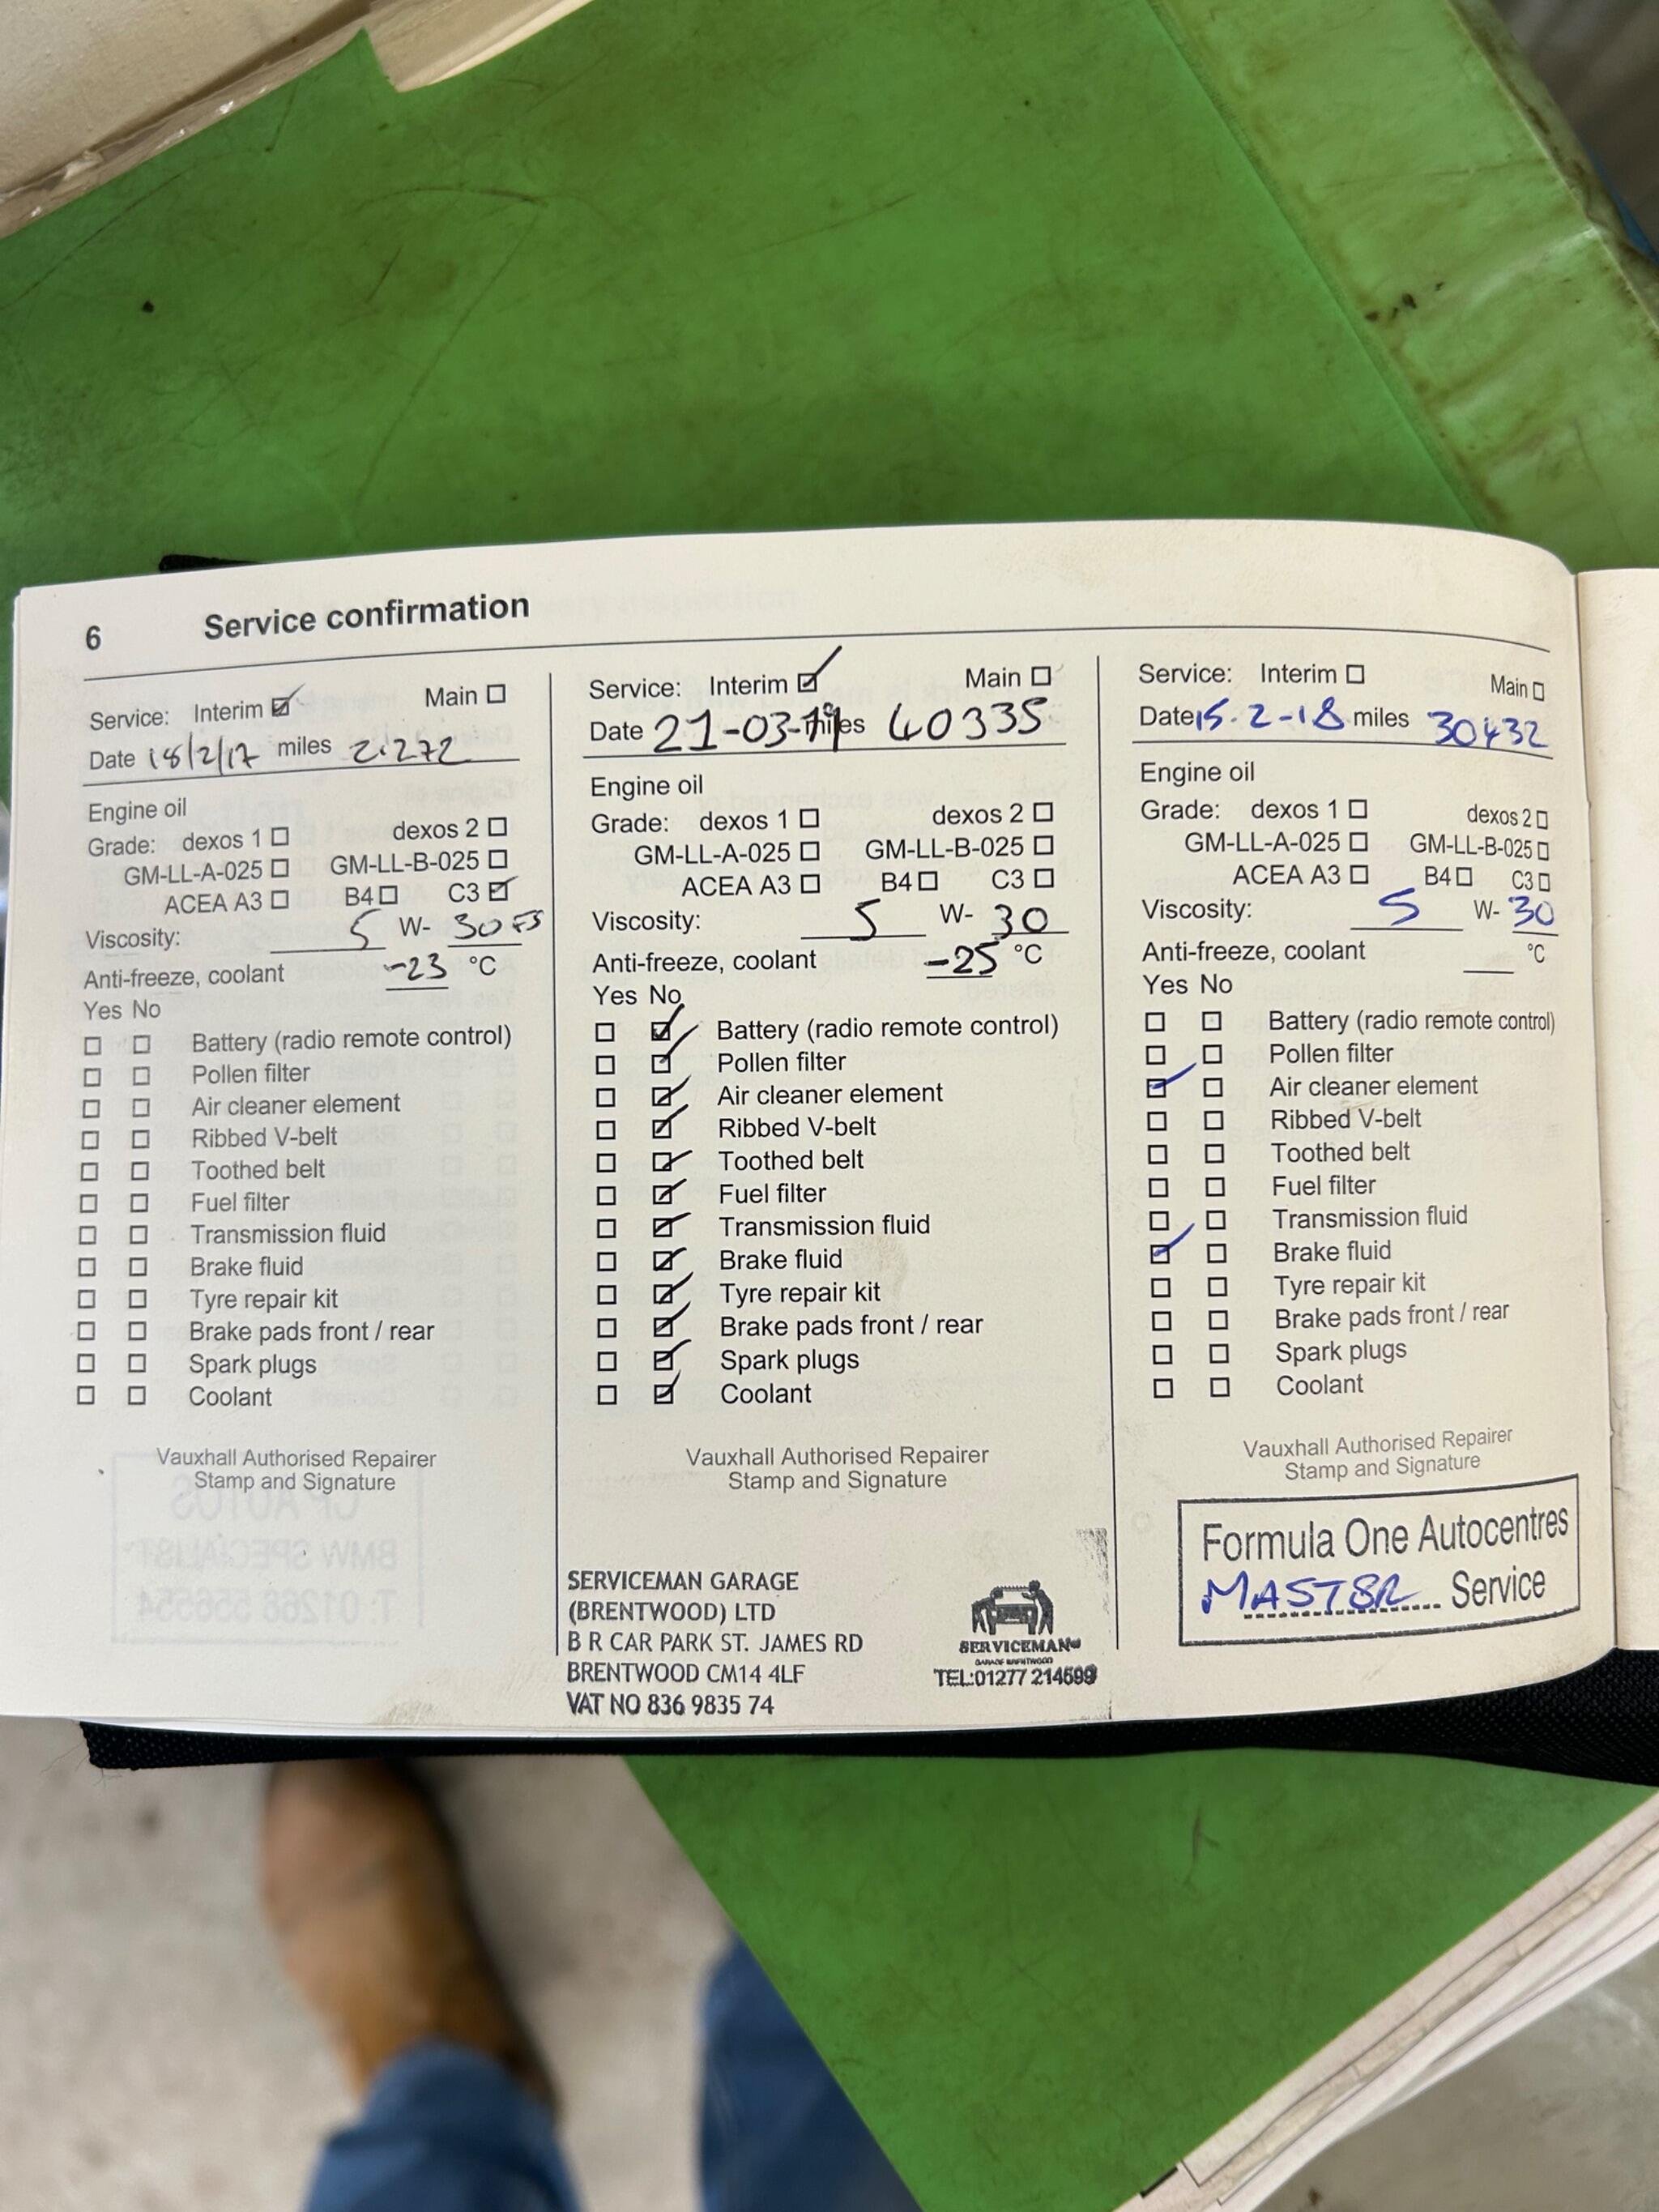 6 Service confirmation
Service: Interim Main
Date 18/2/17 miles 21272
Engine oil
Grade: dexos 1 dexos 2
GM-LL-A-025 GM-LL-B-025
ACEA A3 B4 C3
Viscosity: 5 W- 30 FS
Anti-freeze, coolant -23 °C
Yes No
Battery (radio remote control)
Pollen filter
Air cleaner element
Ribbed V-belt
Toothed belt
Fuel filter
Transmission fluid
Brake fluid
Tyre repair kit
Brake pads front / rear
Spark plugs
Coolant
Vauxhall Authorised Repairer
Stamp and Signature
Service: Interim Main
Date 21-03-19 miles 40335
Engine oil
Grade: dexos 1 dexos 2
GM-LL-A-025 GM-LL-B-025
ACEA A3 B4 C3
Viscosity: 5 W- 30
Anti-freeze, coolant -25 °C
Yes No
Battery (radio remote control)
Pollen filter
Air cleaner element
Ribbed V-belt
Toothed belt
Fuel filter
Transmission fluid
Brake fluid
Tyre repair kit
Brake pads front / rear
Spark plugs
Coolant
Vauxhall Authorised Repairer
Stamp and Signature
SERVICEMAN GARAGE
(BRENTWOOD) LTD
B R CAR PARK ST. JAMES RD
BRENTWOOD CM14 4LF
VAT NO 836 9835 74
SERVICEMAN
GARAGE BRENTWOOD
TEL:01277 214599
Service: Interim Main
Date 15.2-18 miles 30432
Engine oil
Grade: dexos 1 dexos 2
GM-LL-A-025 GM-LL-B-025
ACEA A3 B4 C3
Viscosity: 5 W- 30
Anti-freeze, coolant °C
Yes No
Battery (radio remote control)
Pollen filter
Air cleaner element
Ribbed V-belt
Toothed belt
Fuel filter
Transmission fluid
Brake fluid
Tyre repair kit
Brake pads front / rear
Spark plugs
Coolant
Vauxhall Authorised Repairer
Stamp and Signature
Formula One Autocentres
MASTER Service